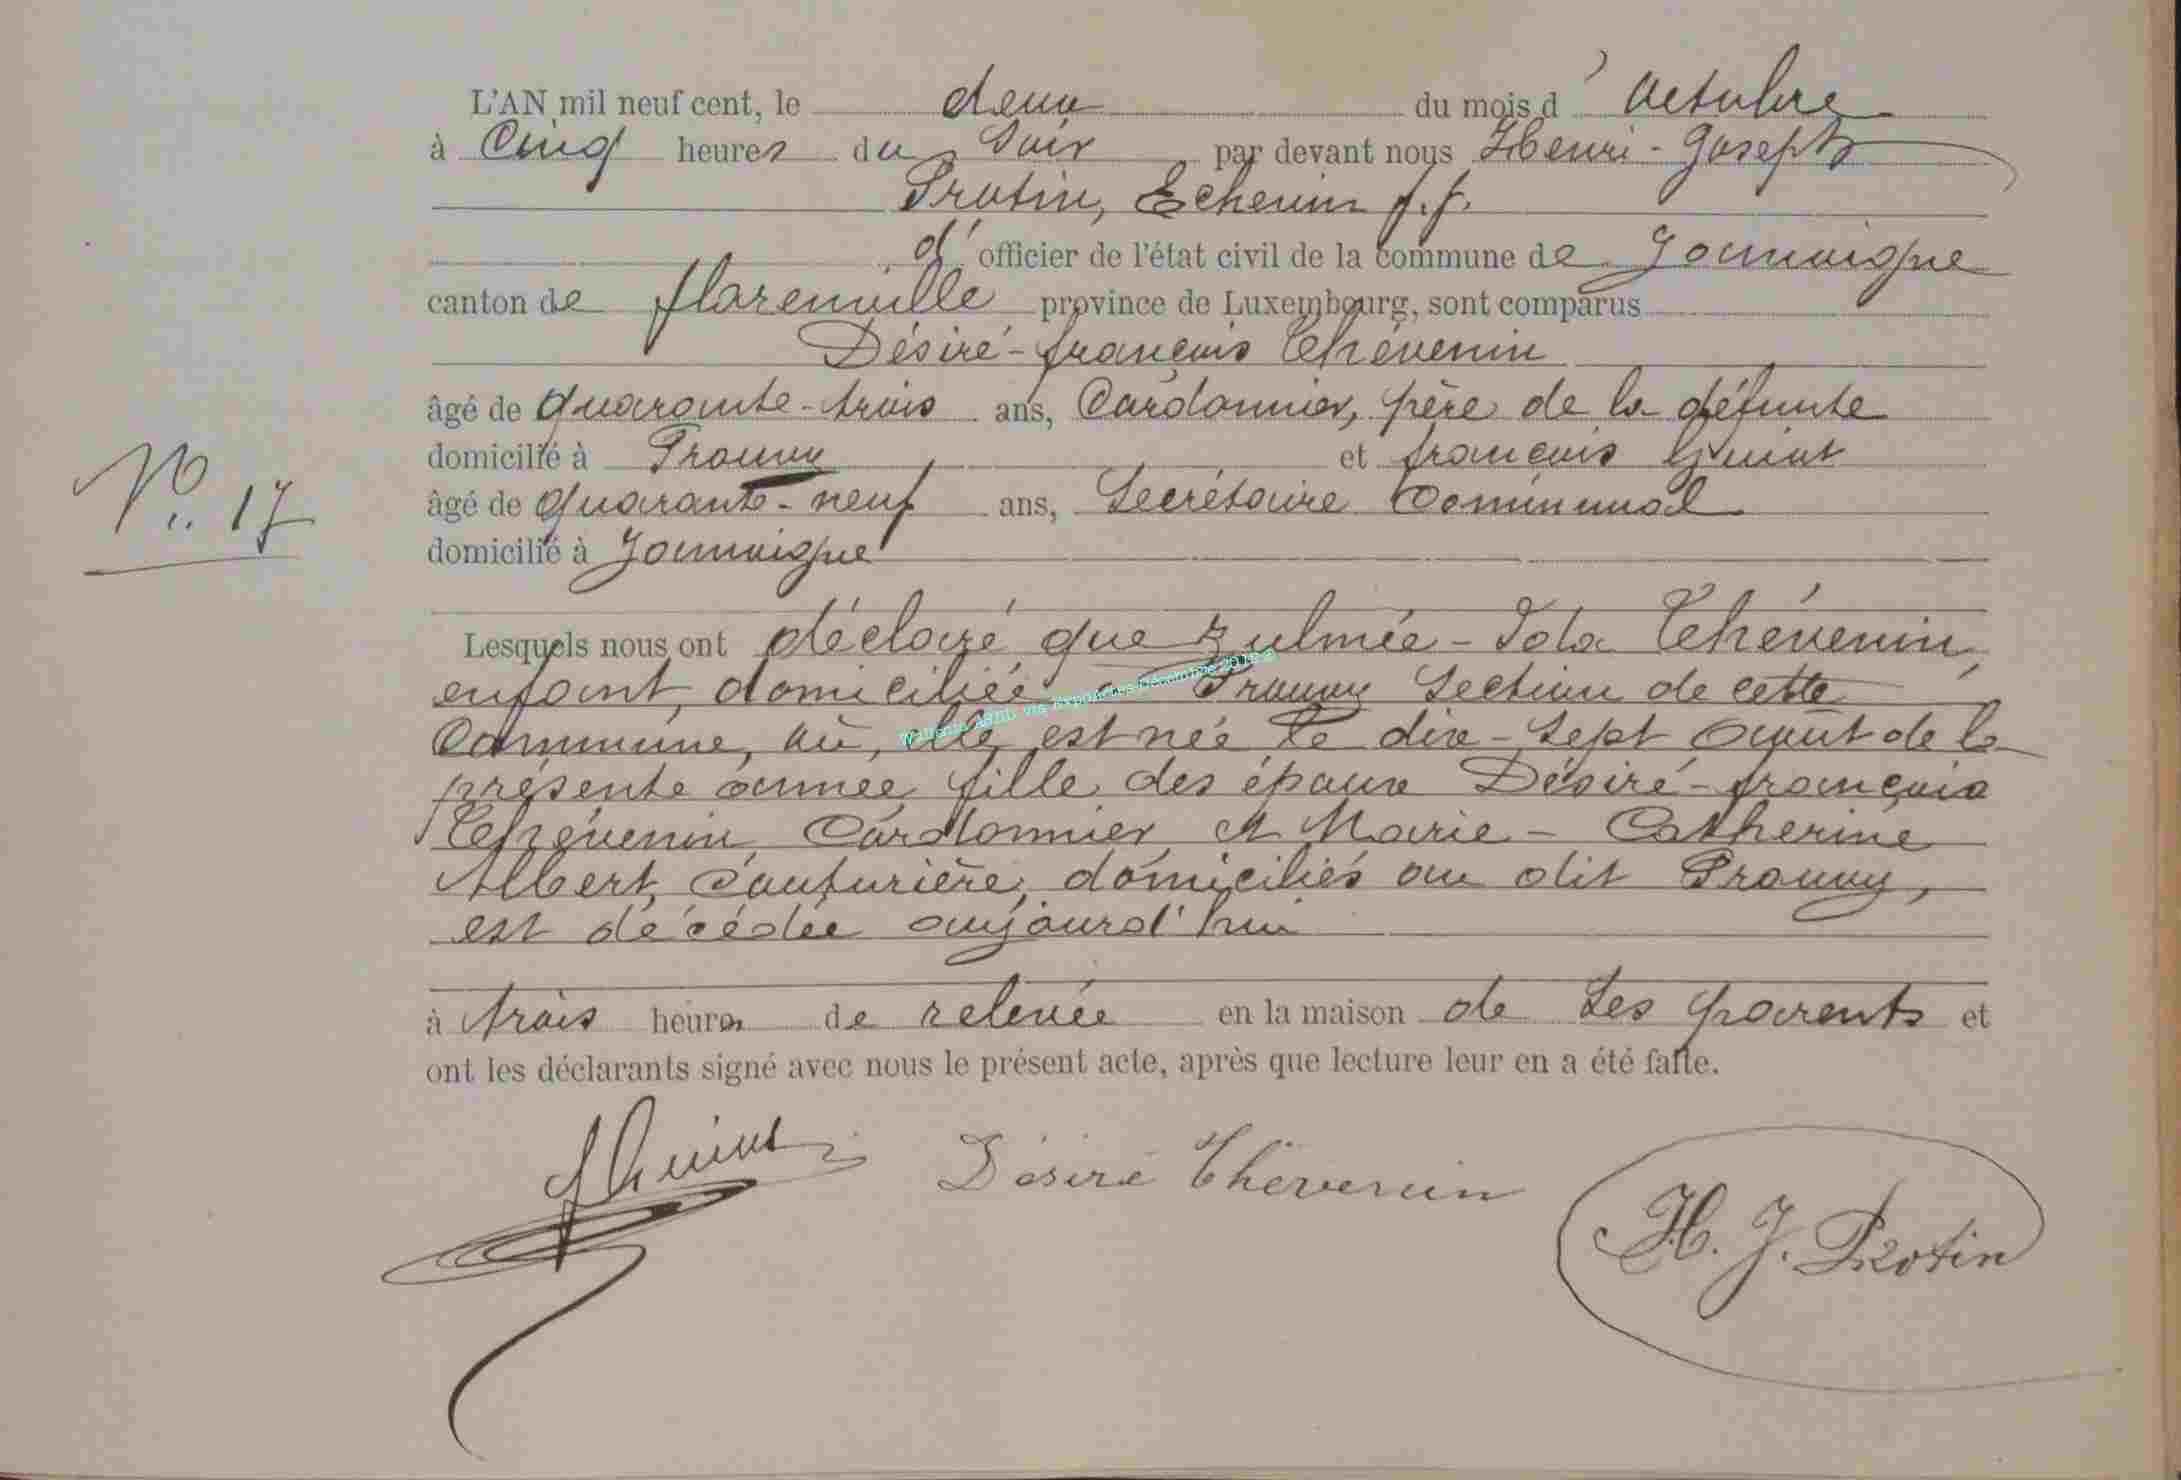 L'AN mil neuf cent, le deux du mois d'Octobre
à Cinq heures du Soir par devant nous Henri-Joseph
Protin, Echevin f.f.
d'officier de l'état civil de la commune de Jamoigne
canton de florenville province de Luxembourg, sont comparus
Désiré-françois Thévenin
âgé de quarante-trois ans, Cordonnier, père de la défunte
domicilié à Prouvy et françois
âgé de quarante-neuf ans, Secrétaire Communal
N° 17
domicilié à Jamoigne
Lesquels nous ont déclaré que Zulmée-Ida Thévenin,
enfant, domiciliée à Prouvy Section de cette
Commune, où, elle est née le dix-sept août de la
présente année, fille des époux Désiré-françois
Thévenin, Cordonnier et Marie-Catherine
Albert, Couturière, domiciliés au dit Prouvy,
est décédée aujourd'hui
à trois heures de relevée en la maison de Ses parents et
ont les déclarants signé avec nous le présent acte, après que lecture leur en a été faite.
Désiré Thévenin
H. J. Protin